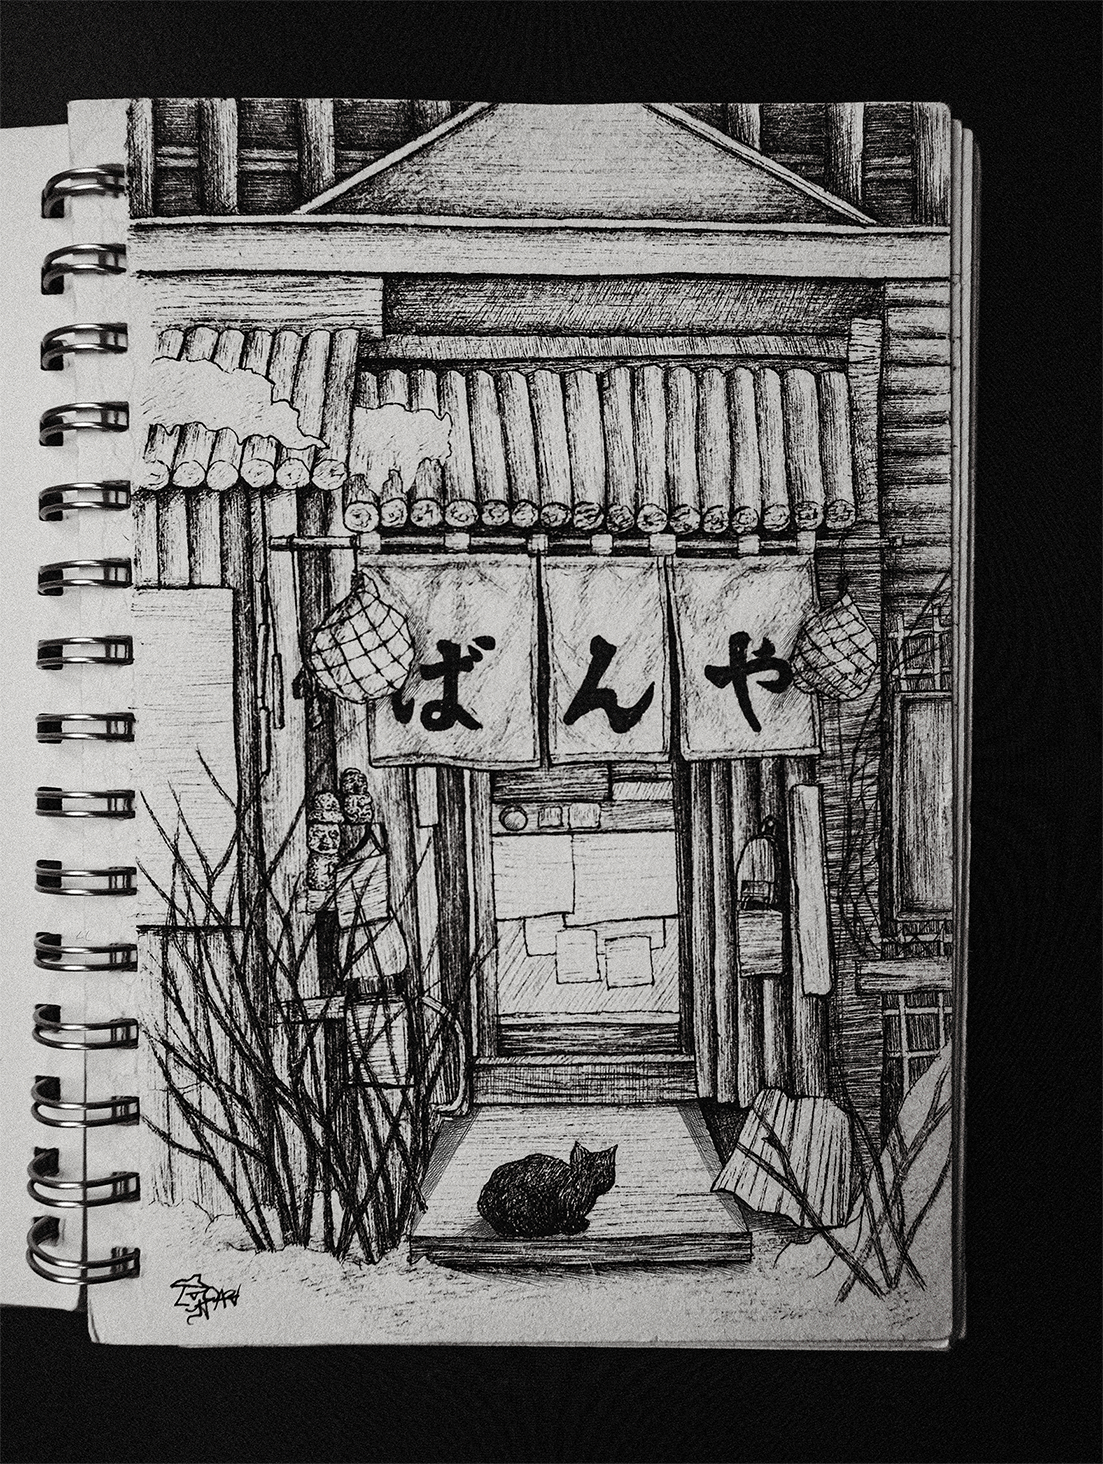 ばんや